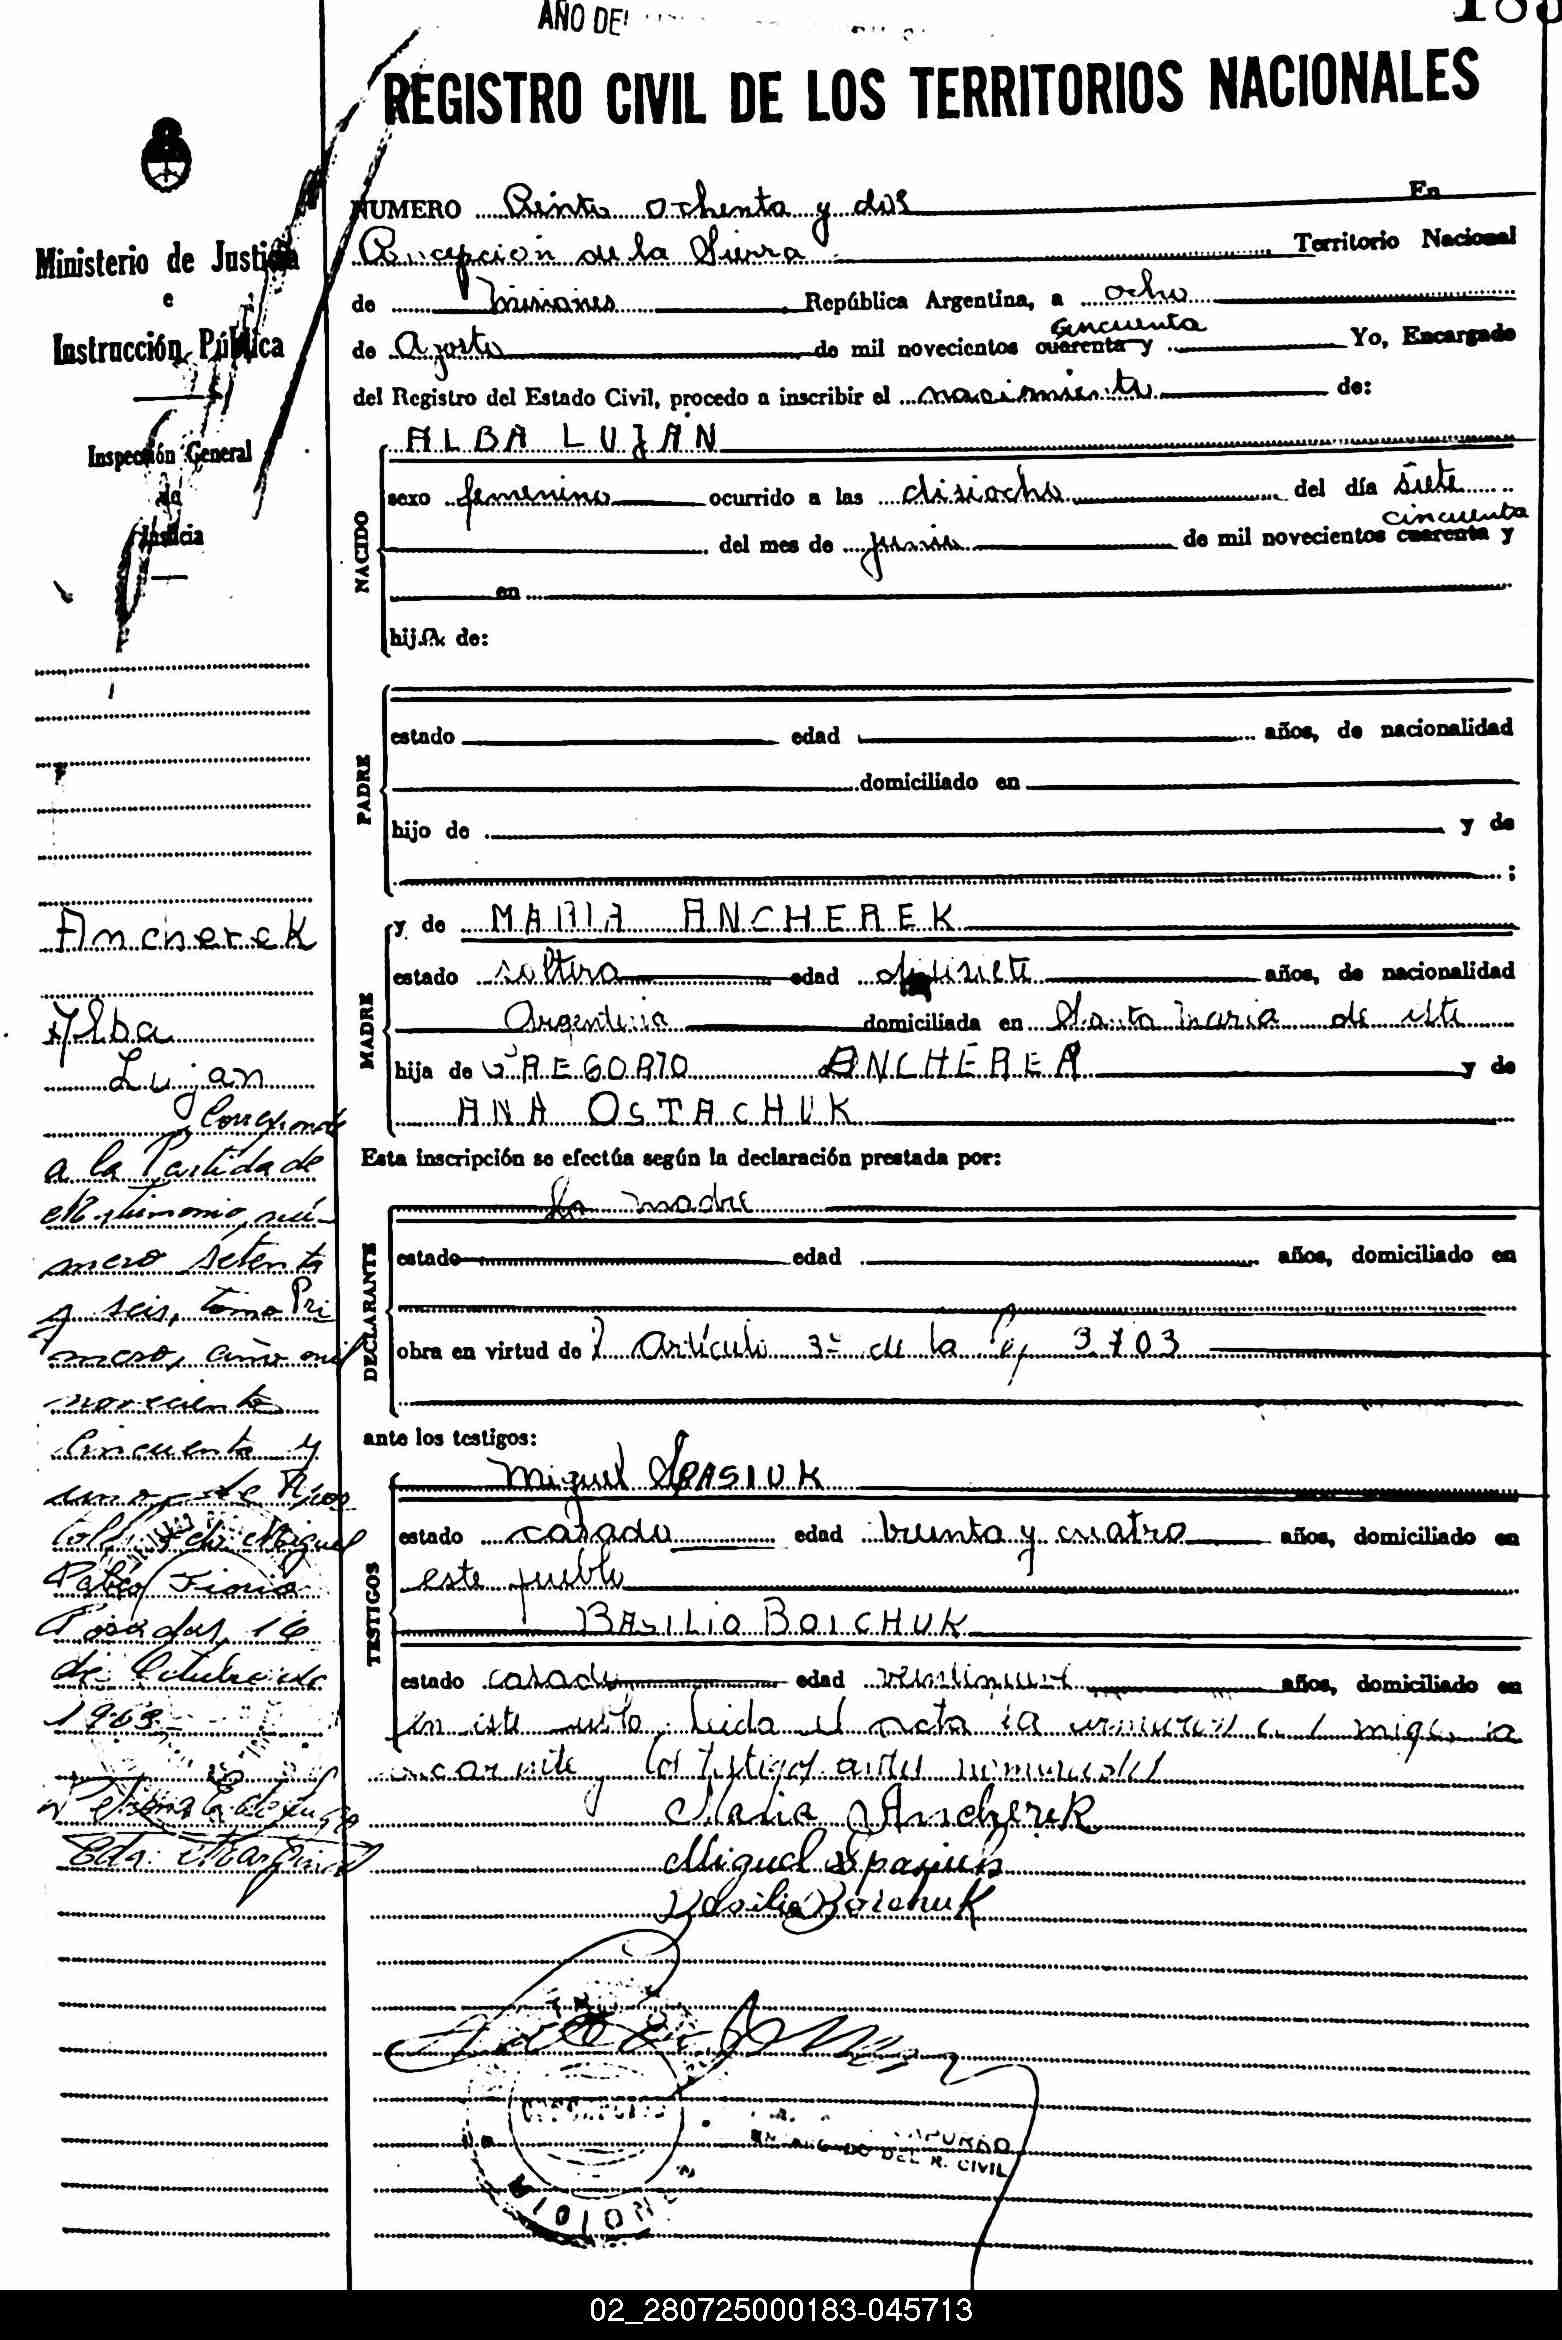 AÑO DEL
REGISTRO CIVIL DE LOS TERRITORIOS NACIONALES
Ministerio de Justicia
e
Instrucción Pública
Inspección General
de
Justicia
NUMERO Ciento ochenta y dos En
Concepción de la Sierra Territorio Nacional
de Misiones República Argentina, a ocho
cincuenta
de Agosto de mil novecientos cuarenta y Yo, Encargado
del Registro del Estado Civil, procedo a inscribir el nacimiento de:
NACIDO
ALBA LUJAN
sexo femenino ocurrido a las disiocho del día siete
cincuenta
del mes de junio de mil novecientos cuarenta y
en
hija de:
PADRE
estado edad años, de nacionalidad
domiciliado en
hijo de y de
:
MADRE
y de MARIA ANCHEREK
estado soltera edad años, de nacionalidad
Argentina domiciliada en Santa Maria de este
hija de GREGORIO ANCHEREK y de
ANA OSTACHUK
Esta inscripción se efectúa según la declaración prestada por:
DECLARANTE
La madre
estado edad años, domiciliado en
obra en virtud de l Artículo 3º de la Ley 3703
ante los testigos:
TESTIGOS
Miguel SPASIUK
estado casado edad treinta y cuatro años, domiciliado en
este pueblo
BASILIO BOICHUK
estado casado edad veintinueve años, domiciliado en
en este Leida el acta la
los testigos antes nombrados
Maria Ancherek
Miguel Spasiuk
Basilio Boichuk
ENCARGADO DEL R. CIVIL
Ancherek
Alba
Lujan
Corresponde
a la Partida de
Matrimonio nú-
mero setenta
y seis, tomo Pri
mero, año mil
novecientos
Cincuenta y
uno, de Após
toles, de Miguel
Pablo
Posadas, 16
de Octubre de
1963
02_280725000183-045713